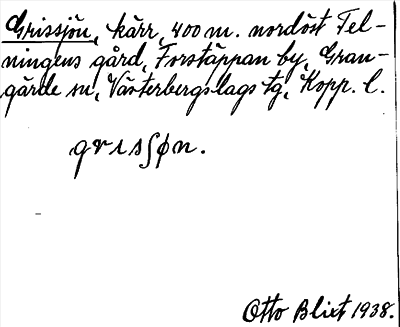 Grissjön, kärr, 400 m. nordöst Tel-
ningens gård, Forstäppan by, Gran-
gärde sn, Västerbergslags tg, Kopp. l.
grısʃøn.
Otto Blixt 1938.